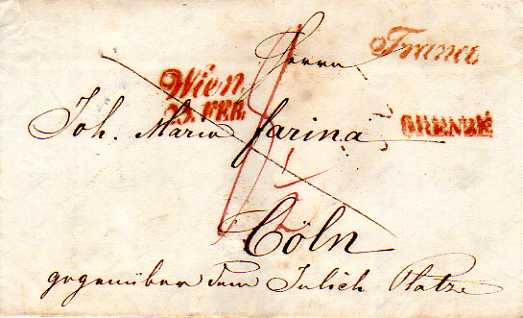 Herrn
Franco
Wien
25. FEB.
Joh. Maria farina
GRENZE
Cöln
gegenüber dem Julich Platze